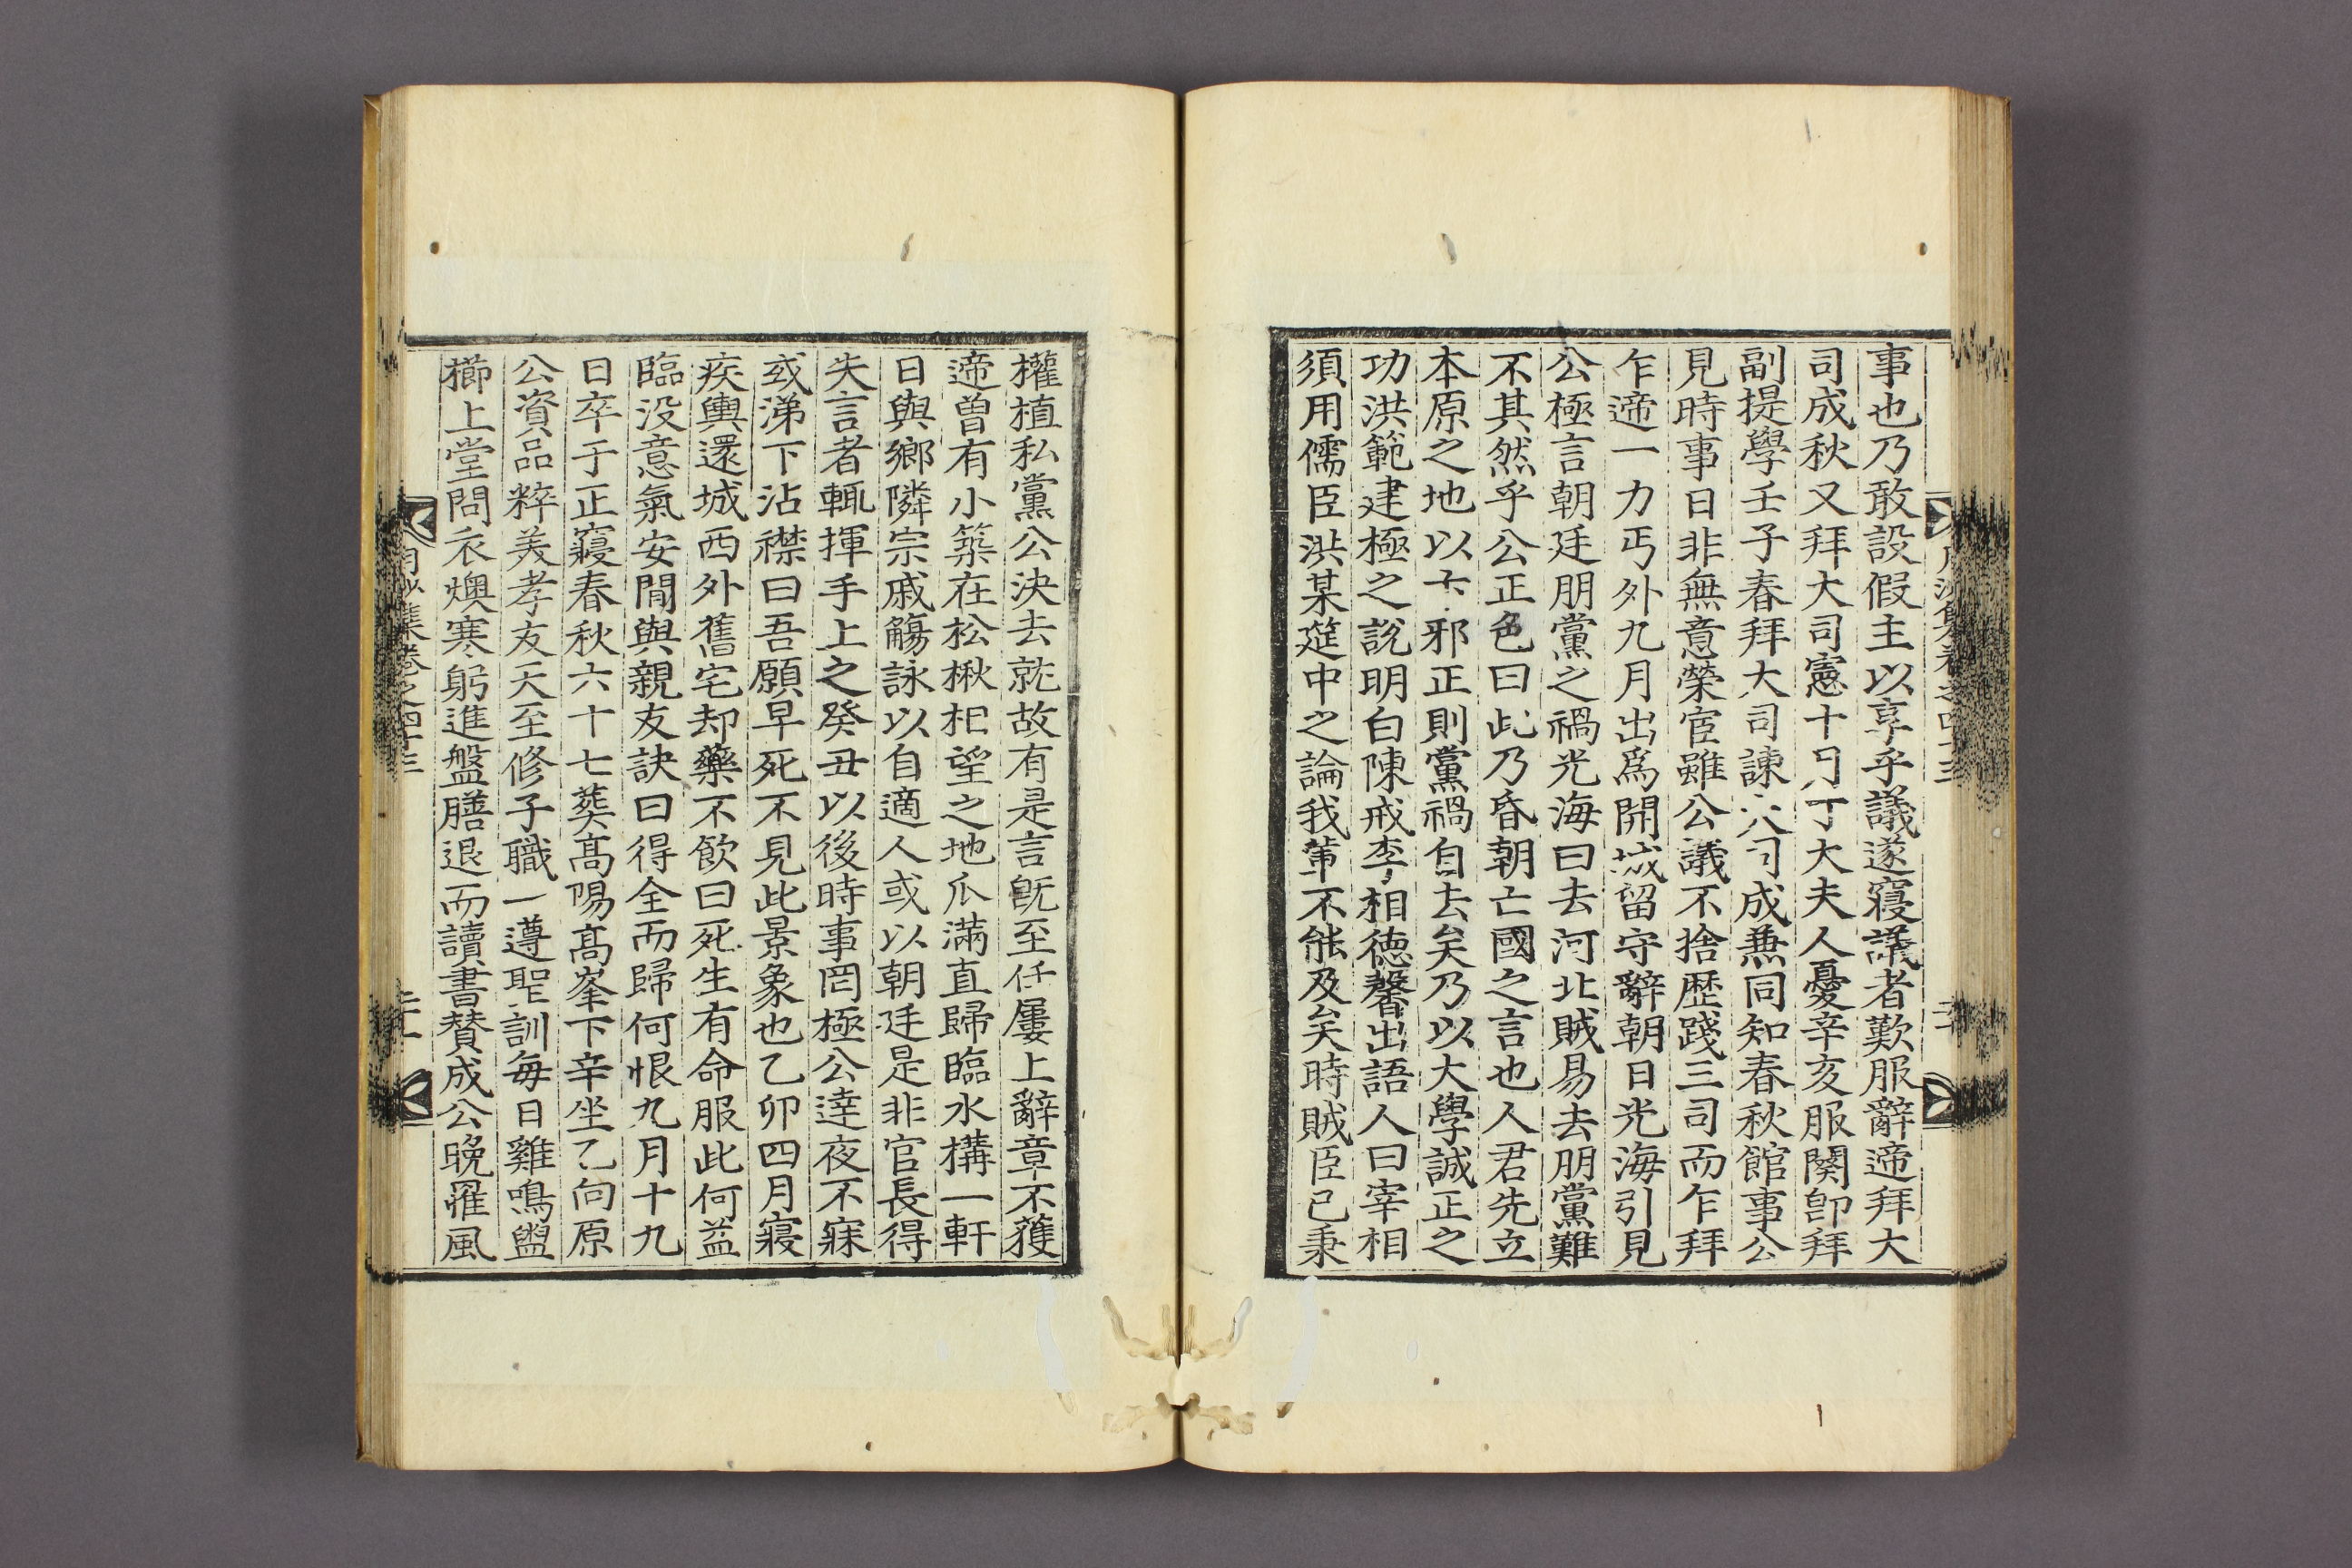 事也乃敢設假主以享乎議遂寢議者歎服辭遞拜大
司成秋又拜大司憲十月丁大夫人憂辛亥服闋卽拜
副提學壬子春拜大司諫大司成兼同知春秋館事公
見時事日非無意榮宦雖公議不捨歷踐三司而乍拜
乍遞一力丐外九月出爲開城留守辭朝日光海引見
公極言朝廷朋黨之禍光海曰去河北賊易去朋黨難
不其然乎公正色曰此乃昏朝亡國之言也人君先立
本原之地以卞邪正則黨禍自去矣乃以大學誠正之
功洪範建極之說明白陳戒李相德馨出語人曰宰相
須用儒臣洪某筵中之論我輩不能及矣時賊臣已秉
權植私黨公決去就故有是言旣至任屢上辭章不獲
遞曾有小築在松楸相望之地瓜滿直歸臨水構一軒
日與鄕隣宗戚觴詠以自適人或以朝廷是非官長得
失言者輒揮手上之癸丑以後時事罔極公達夜不寐
或涕下沾襟曰吾願早死不見此景象也乙卯四月寢
疾輿還城西外舊宅却藥不飮曰死生有命服此何益
臨沒意氣安閒與親友訣曰得全而歸何恨九月十九
日卒于正寢春秋六十七葬高陽高峯下辛坐乙向原
公資品粹美孝友天至修子職一遵聖訓每日雞鳴盥
櫛上堂問衣燠寒躬進盤膳退而讀書贊成公晩罹風
集卷之四十三